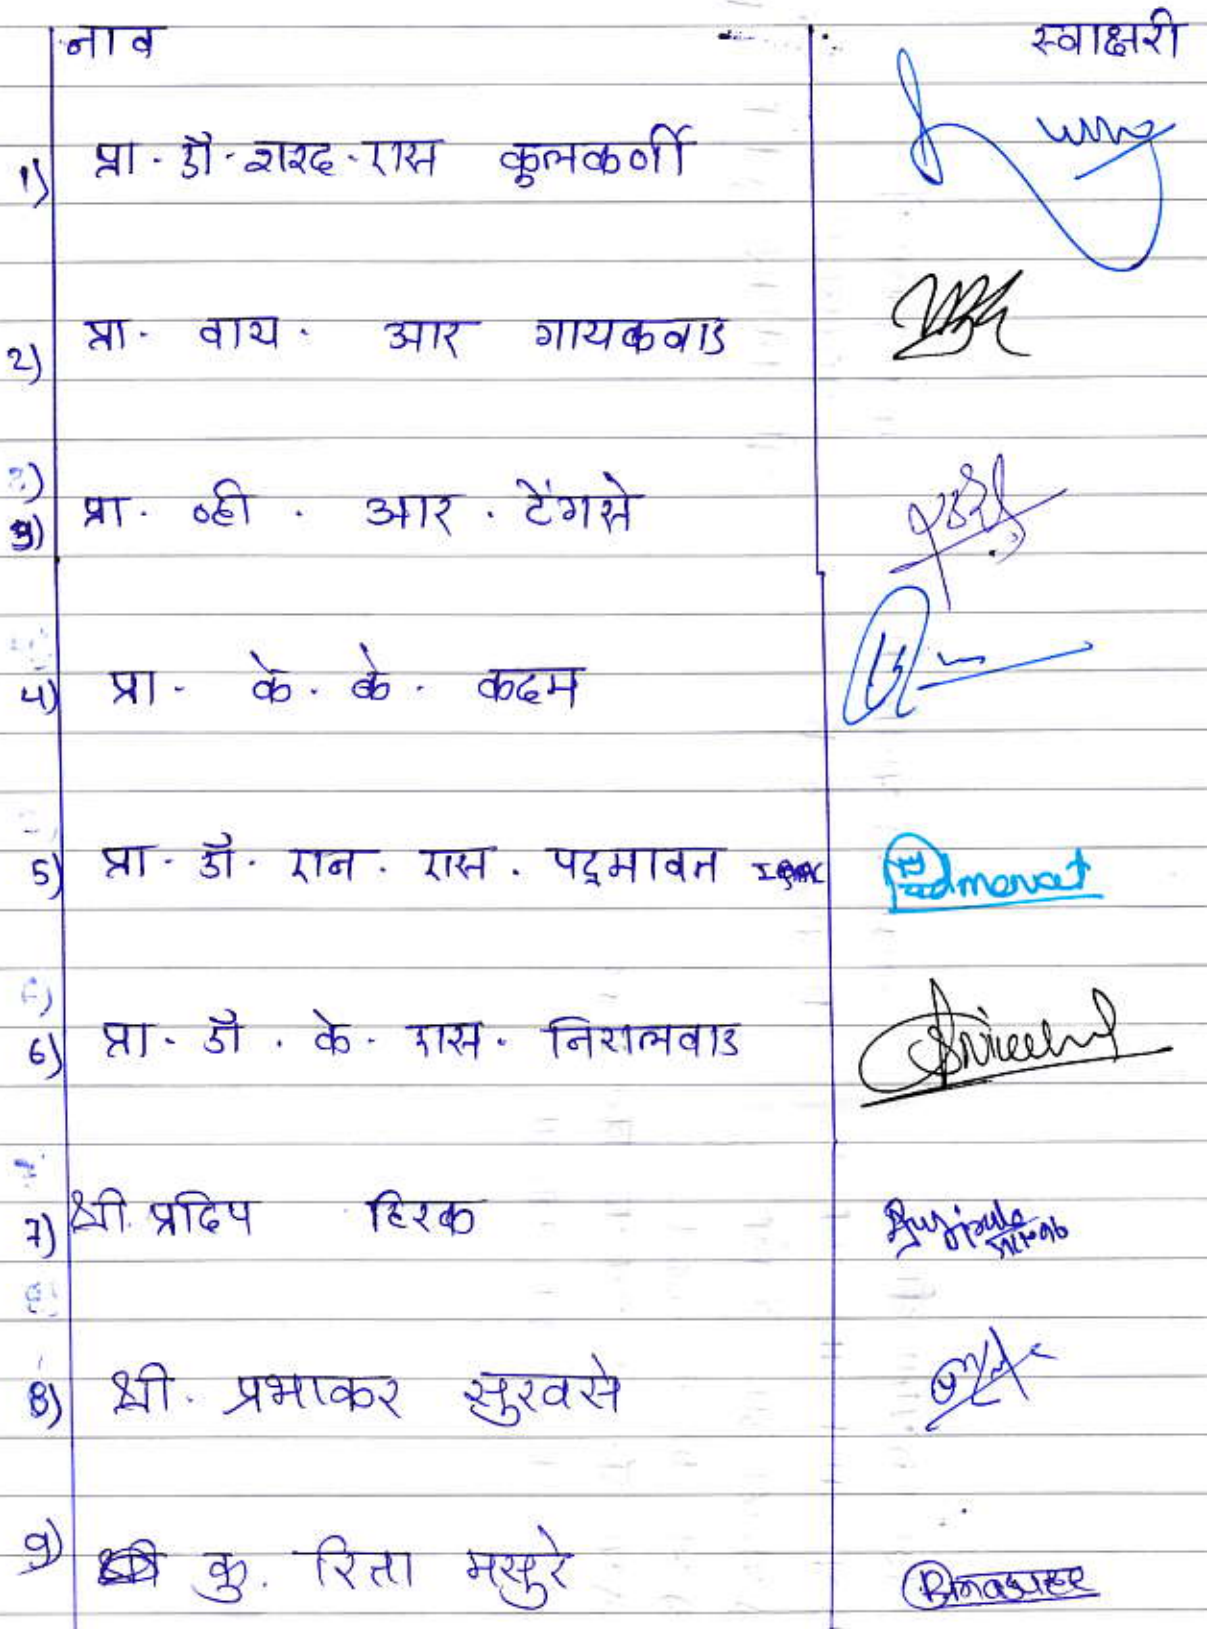 नाव स्वाक्षरी
1) प्रा. डॉ. शरद. एस कुलकर्णी
2) प्रा. वाय. आर गायकवाड
3) प्रा. व्ही. आर. टेंगसे
4) प्रा. के. के. कदम
5) प्रा. डॉ. एन. एस. पद्मावत Padmavat
6) प्रा. डॉ. के. एस. निरालवाड
7) श्री. प्रदिप हिरक
8) श्री. प्रभाकर सुरवसे
9) कु. रिता मसुरे Rmasure